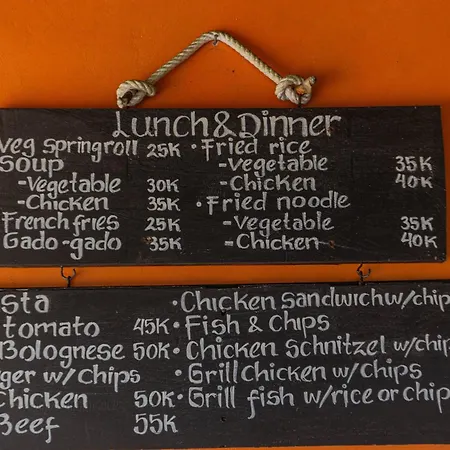 Lunch & Dinner
veg springroll 25K
Soup
-Vegetable 30K
-Chicken 35K
French fries 25K
Gado-gado 35K
• Fried rice
-Vegetable 35K
-Chicken 40K
• Fried noodle
-Vegetable 35K
-Chicken 40K
sta
tomato 45K
Bolognese 50K
ger w/ chips
Chicken 50K
Beef 55K
• Chicken sandwich w/chip
• Fish & chips
• Chicken schnitzel w/chip
• Grill chicken w/chips
• Grill fish w/rice or chip